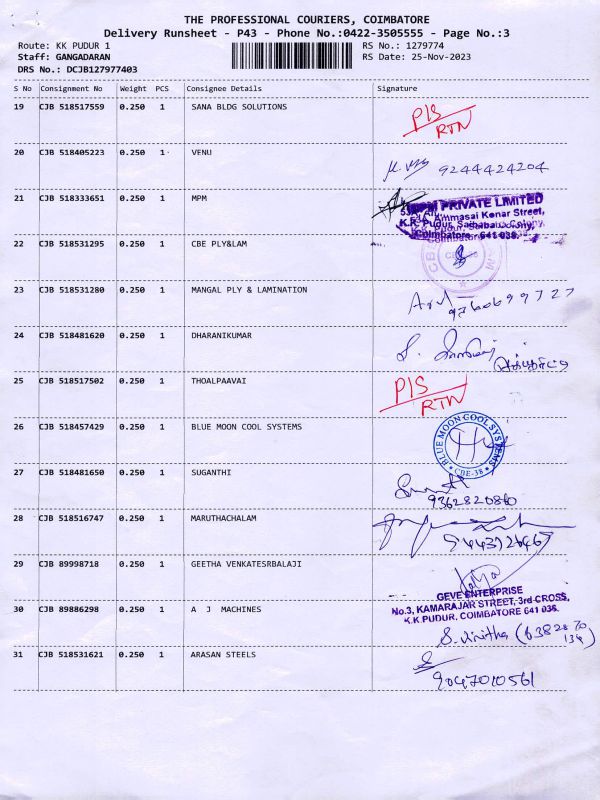 THE PROFESSIONAL COURIERS, COIMBATORE
Delivery Runsheet - P43 - Phone No.:0422-3505555 - Page No.:3
Route: KK PUDUR 1 RS No.: 1279774
Staff: GANGADARAN RS Date: 25-Nov-2023
DRS No.: DCJB127977403
S No Consignment No Weight PCS Consignee Details Signature
19 CJB 518517559 0.250 1 SANA BLDG SOLUTIONS P/S
RTN
20 CJB 518405223 0.250 1 VENU 9244424204
21 CJB 518333651 0.250 1 MPM MPM PRIVATE LIMITED
Ammasai Konar Street,
K.R. Pudur, Saibaba Colony,
Coimbatore - 641 038.
22 CJB 518531295 0.250 1 CBE PLY&LAM
23 CJB 518531280 0.250 1 MANGAL PLY & LAMINATION
24 CJB 518481620 0.250 1 DHARANIKUMAR
25 CJB 518517502 0.250 1 THOALPAAVAI P/S
RTN
26 CJB 518457429 0.250 1 BLUE MOON COOL SYSTEMS BLUE MOON COOL SYSTEMS
CBE-38
27 CJB 518481650 0.250 1 SUGANTHI
9362820860
28 CJB 518516747 0.250 1 MARUTHACHALAM
29 CJB 89998718 0.250 1 GEETHA VENKATESRBALAJI
GEVE ENTERPRISE
No.3, KAMARAJAR STREET, 3rd CROSS,
K.K.PUDUR, COIMBATORE 641 038.
30 CJB 89886298 0.250 1 A J MACHINES
S. Vinitha (63828 70
134)
31 CJB 518531621 0.250 1 ARASAN STEELS
9047010561